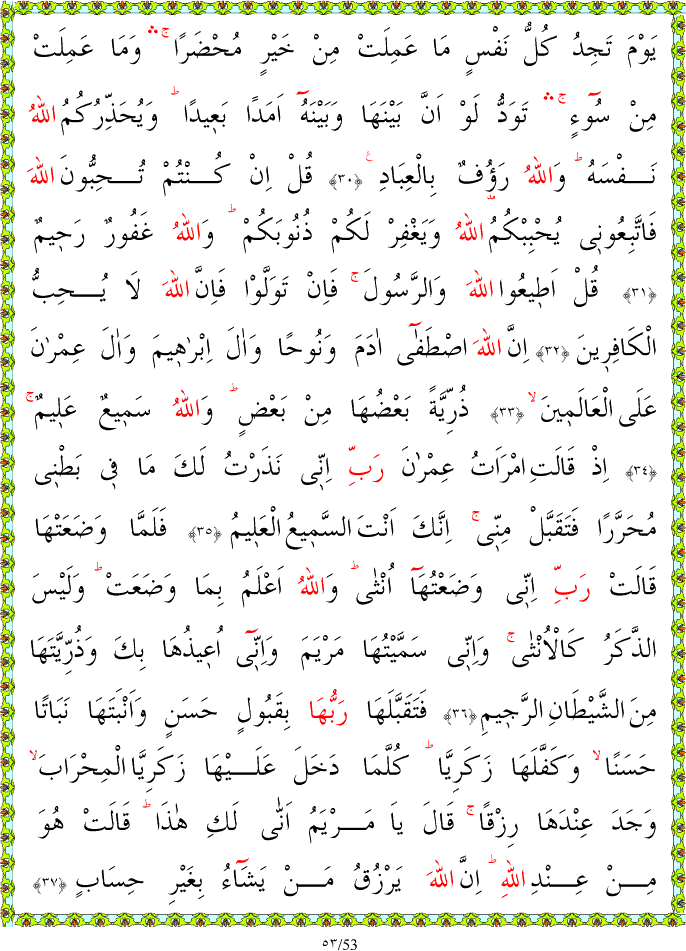 يَوْمَ تَجِدُ كُلُّ نَفْسٍ مَا عَمِلَتْ مِنْ خَيْرٍ مُحْضَرًاۚۛ وَمَا عَمِلَتْ
مِنْ سُٓوءٍۚۛ تَوَدُّ لَوْ اَنَّ بَيْنَهَا وَبَيْنَهُٓ اَمَدًا بَع۪يدًاۜ وَيُحَذِّرُكُمُ اللّٰهُ
نَـفْسَهُۜ وَاللّٰهُ رَؤُفٌ بِالْعِبَادِ۟ ﴿٣٠﴾ قُلْ اِنْ كُـنْتُمْ تُـحِبُّونَ اللّٰهَ
فَاتَّبِعُون۪ي يُحْبِبْكُمُ اللّٰهُ وَيَغْفِرْ لَكُمْ ذُنُوبَكُمْۜ وَاللّٰهُ غَفُورٌ رَح۪يمٌ
﴿٣١﴾ قُلْ اَط۪يعُوا اللّٰهَ وَالرَّسُولَۚ فَاِنْ تَوَلَّوْا فَاِنَّ اللّٰهَ لَا يُـحِبُّ
الْكَافِر۪ينَ ﴿٣٢﴾ اِنَّ اللّٰهَ اصْطَفٰٓى اٰدَمَ وَنُوحًا وَاٰلَ اِبْرٰه۪يمَ وَاٰلَ عِمْرٰنَ
عَلَى الْعَالَم۪ينَۙ ﴿٣٣﴾ ذُرِّيَّةً بَعْضُهَا مِنْ بَعْضٍۜ وَاللّٰهُ سَم۪يعٌ عَل۪يمٌۚ
﴿٣٤﴾ اِذْ قَالَتِ امْرَاَتُ عِمْرٰنَ رَبِّ اِنّ۪ي نَذَرْتُ لَكَ مَا ف۪ي بَطْن۪ي
مُحَرَّرًا فَتَقَبَّلْ مِنّ۪يۚ اِنَّكَ اَنْتَ السَّم۪يعُ الْعَل۪يمُ ﴿٣٥﴾ فَلَمَّا وَضَعَتْهَا
قَالَتْ رَبِّ اِنّ۪ي وَضَعْتُهَٓا اُنْثٰىۜ وَاللّٰهُ اَعْلَمُ بِمَا وَضَعَتْۜ وَلَيْسَ
الذَّكَرُ كَالْاُنْثٰىۚ وَاِنّ۪ي سَمَّيْتُهَا مَرْيَمَ وَاِنّ۪ٓي اُع۪يذُهَا بِكَ وَذُرِّيَّتَهَا
مِنَ الشَّيْطَانِ الرَّج۪يمِ ﴿٣٦﴾ فَتَقَبَّلَهَا رَبُّهَا بِقَبُولٍ حَسَنٍ وَاَنْبَتَهَا نَبَاتًا
حَسَنًاۙ وَكَفَّلَهَا زَكَرِيَّاۜ كُلَّمَا دَخَلَ عَلَـيْهَا زَكَرِيَّا الْمِحْرَابَۙ
وَجَدَ عِنْدَهَا رِزْقًاۚ قَالَ يَا مَـرْيَمُ اَنّٰى لَكِ هٰذَاۜ قَالَتْ هُوَ
مِـنْ عِـنْدِ اللّٰهِۜ اِنَّ اللّٰهَ يَرْزُقُ مَـنْ يَشَٓاءُ بِغَيْرِ حِسَابٍ ﴿٣٧﴾
٥٣/53